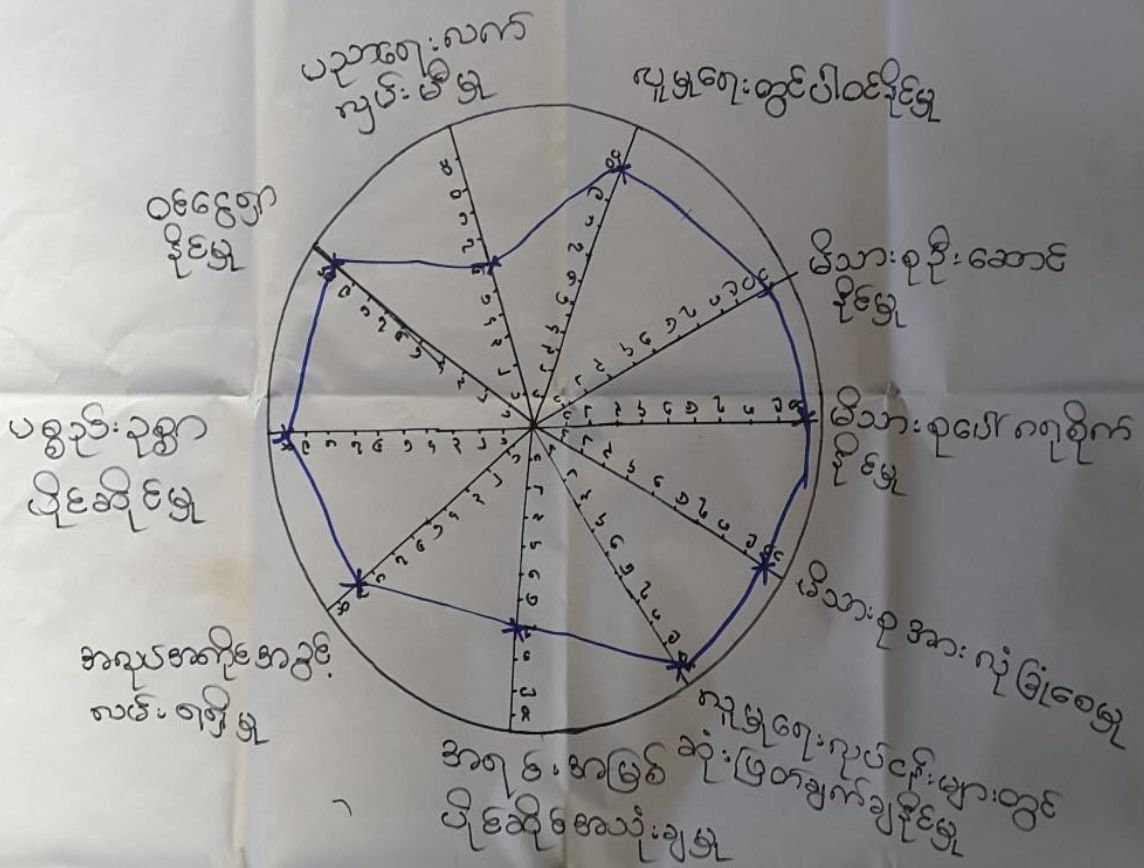 ပညာရေး လက်
လှမ်းမီမှု
လူမှုရေးတွင်ပါဝင်နိုင်မှု
မိသားစုဦးဆောင်
နိုင်မှု
မိသားစုပေါ် ဂရုစိုက်
နိုင်မှု
မိသားစု အားလုံခြုံစေမှု
လူမှုရေးလုပ်ငန်းများတွင်
ဆုံးဖြတ်ချက်ချနိုင်မှု
အရင်းအမြစ်
ပိုင်ဆိုင်အသုံးချမှု
အလုပ်အကိုင်အခွင့်
လမ်းရရှိမှု
ပစ္စည်းဥစ္စာ
ပိုင်ဆိုင်မှု
ဝင်ငွေရှာ
နိုင်မှု